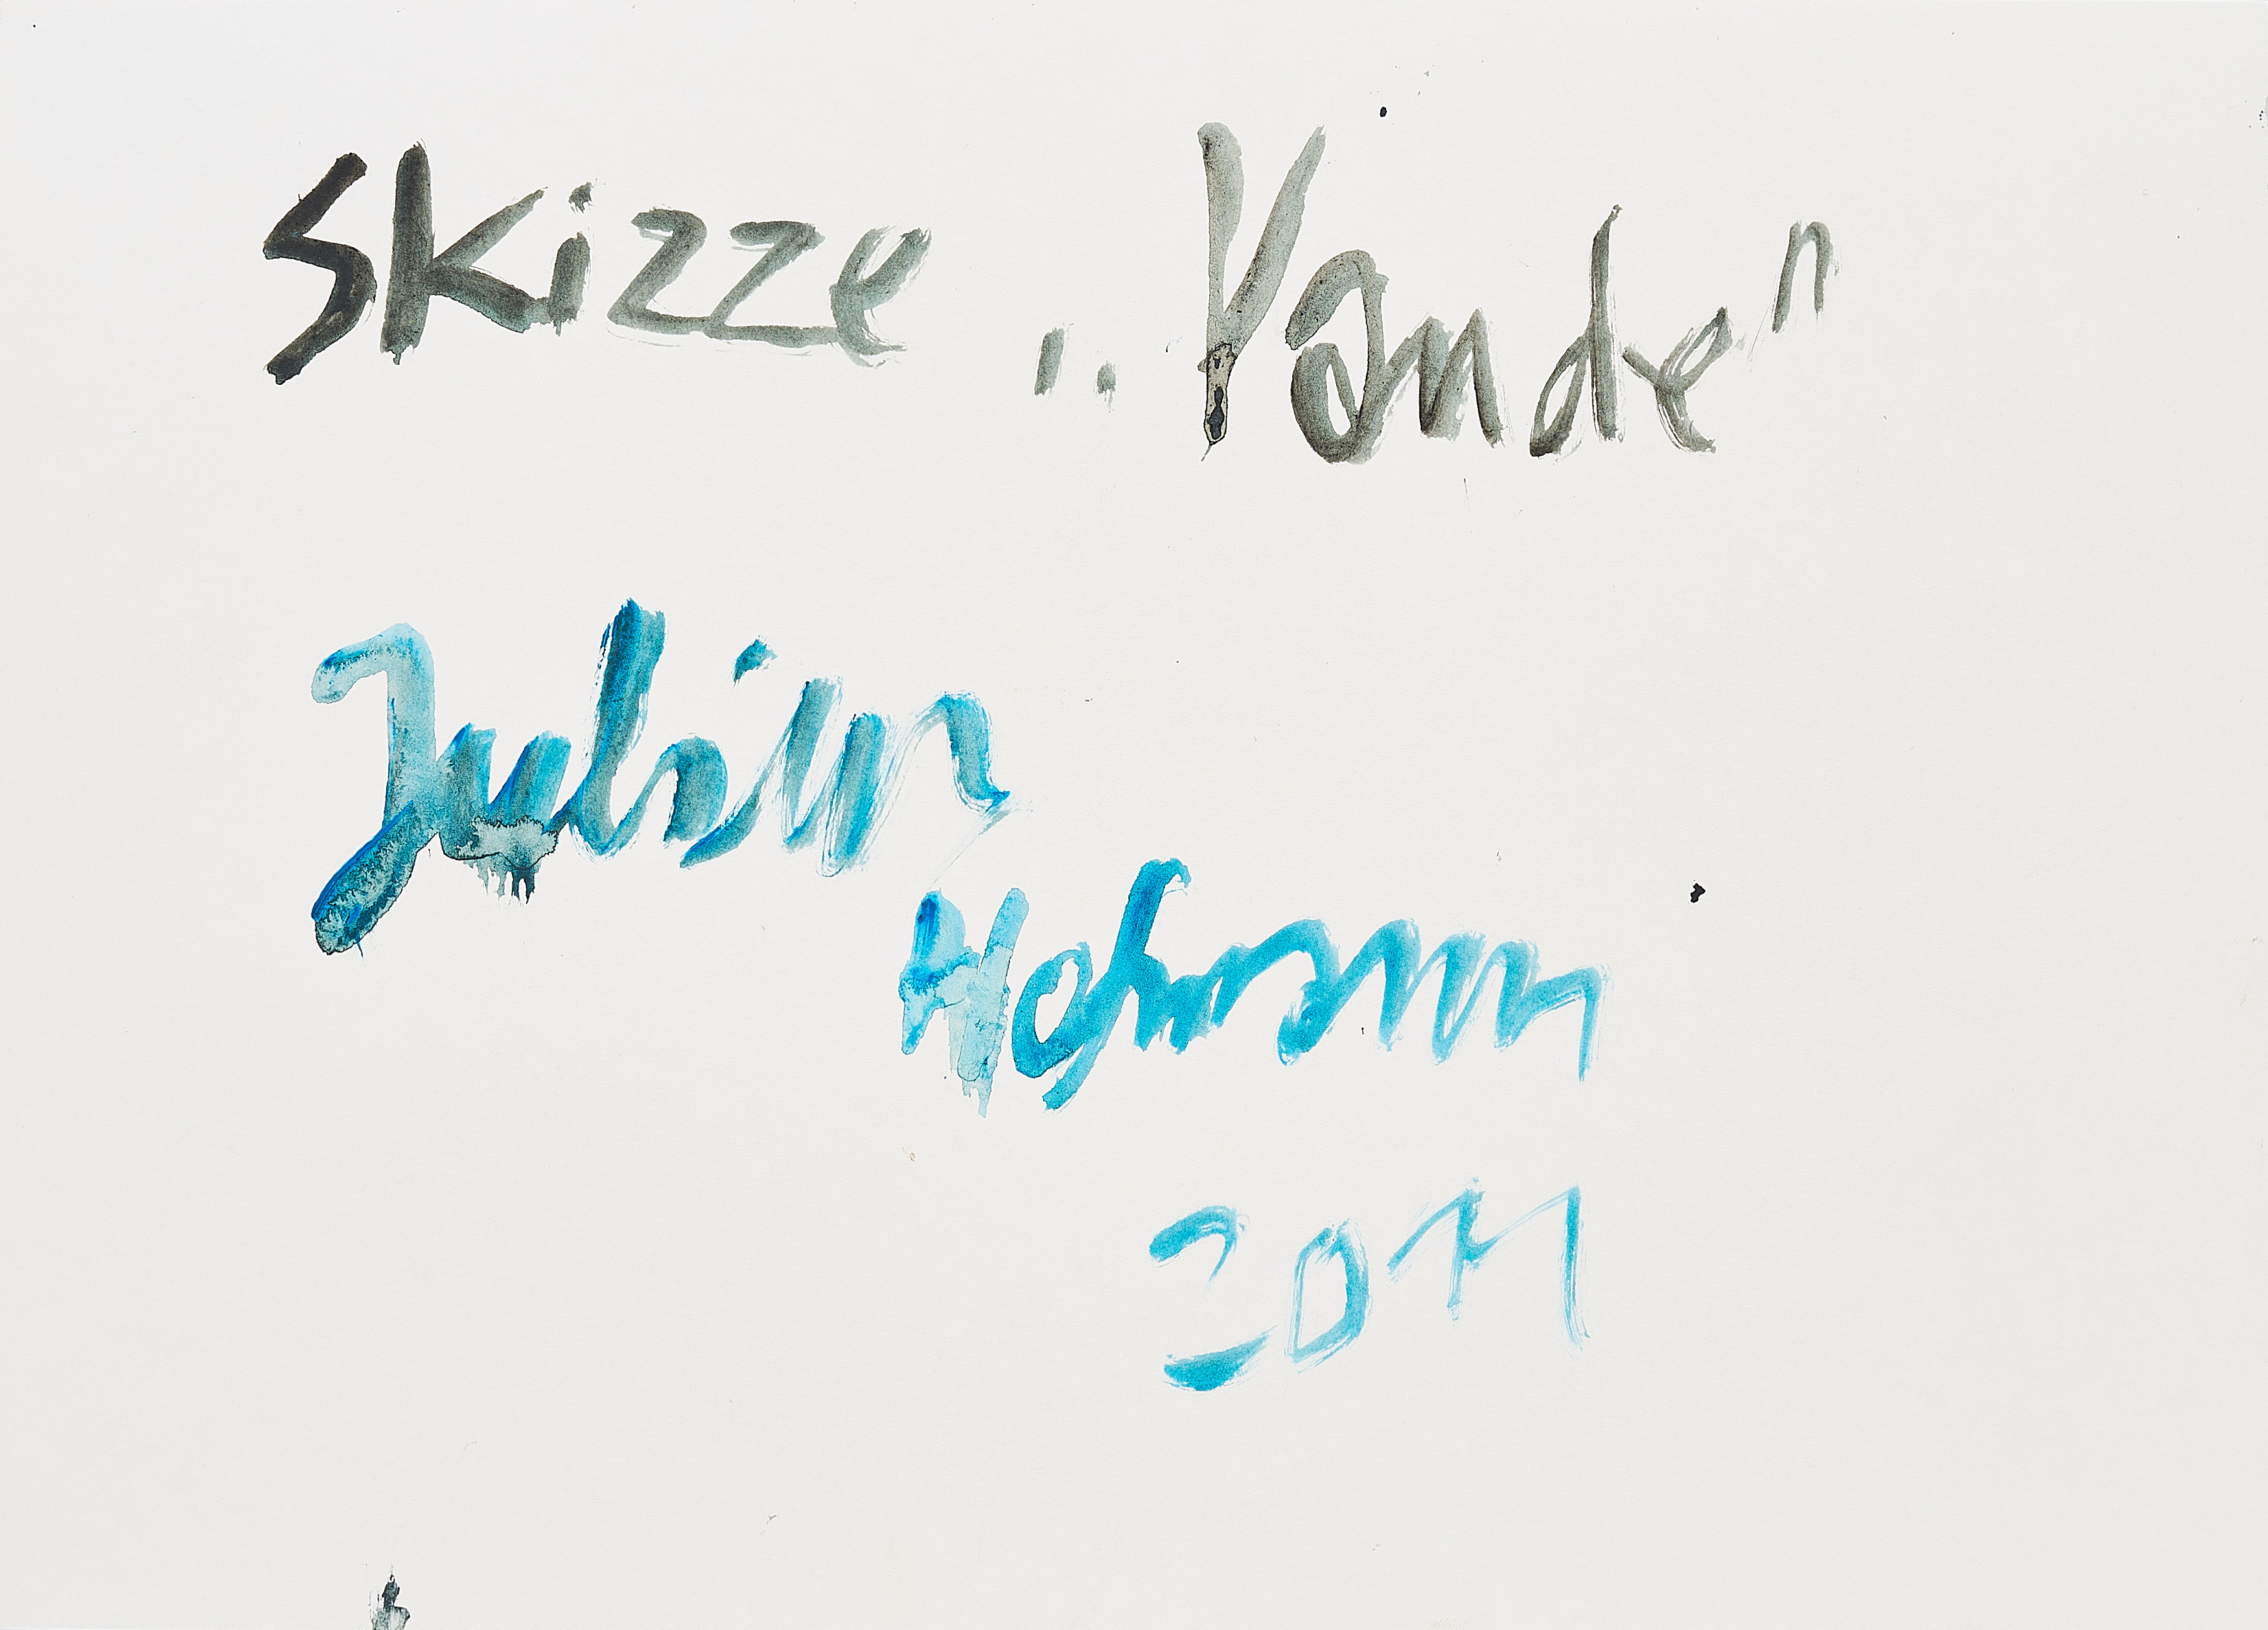 Skizze „Vande"
Julian
Hofmann
2011